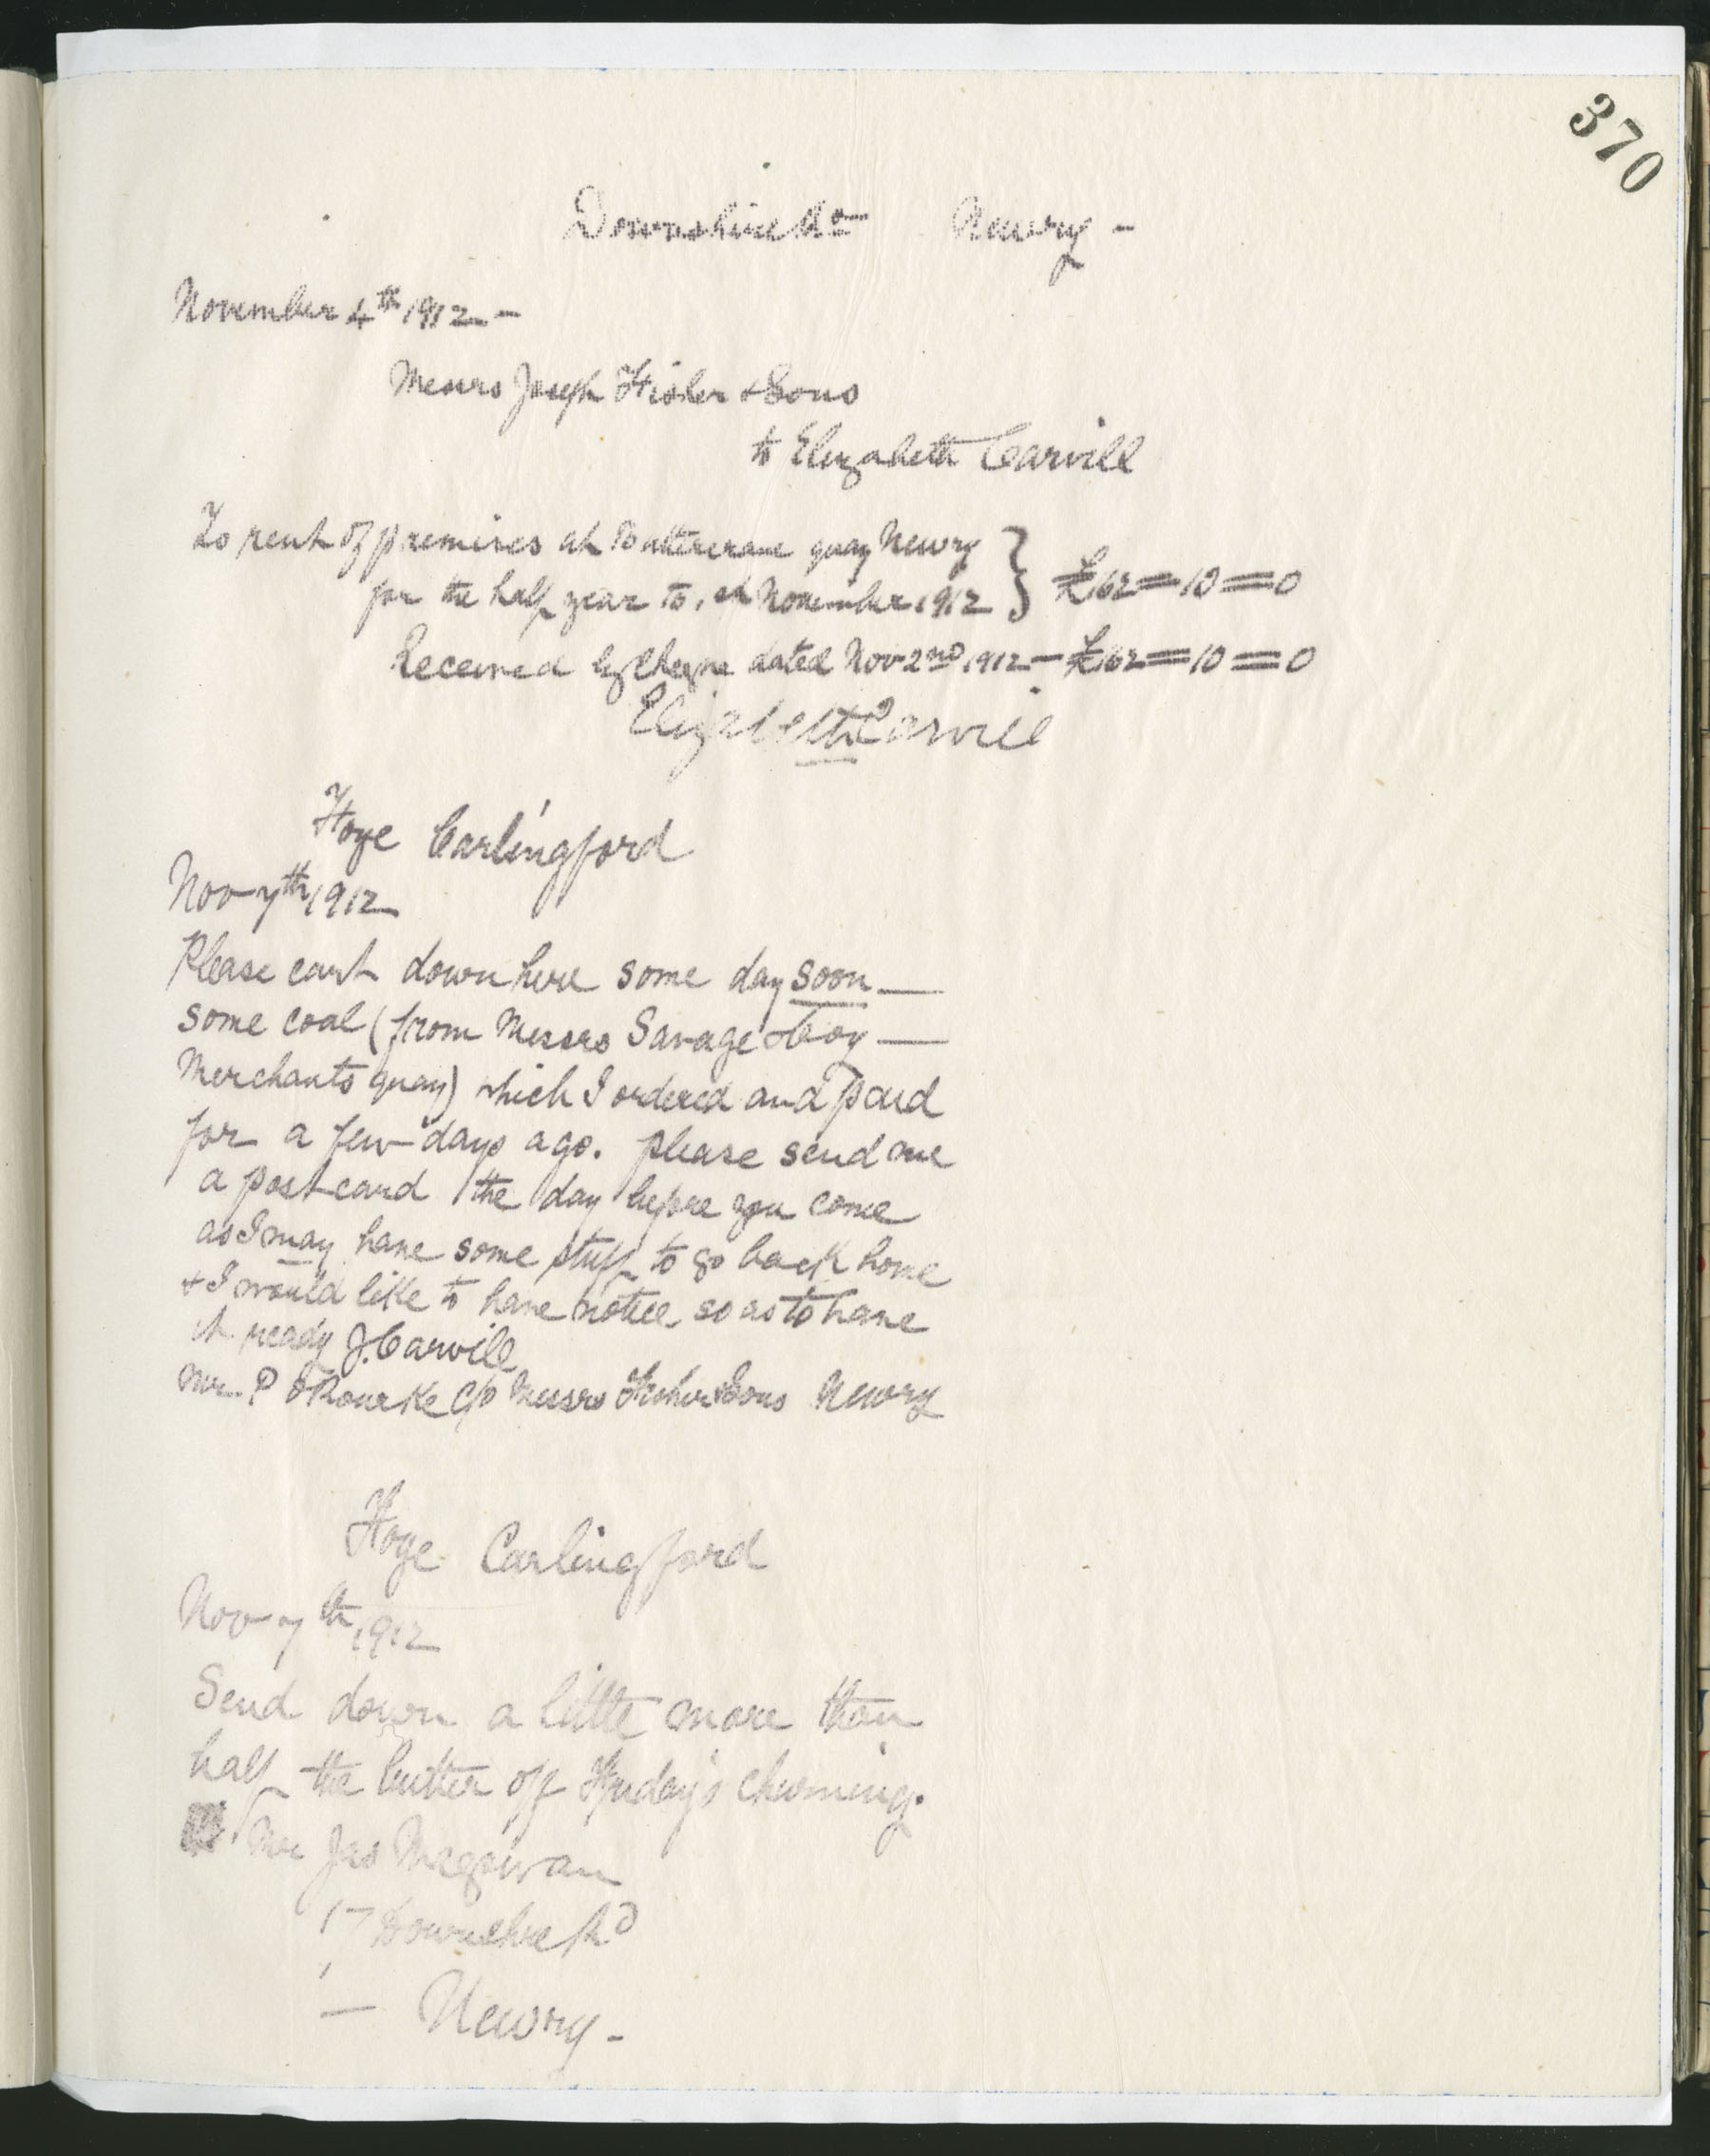 370
Downshire Rd Newry -
November 4th 1912 -
Messrs Joseph Fisher & Sons
to Elizabeth Carvill
To rent of premises at Buttercrane quay Newry
for the half year to 1st November 1912 } £62=10=0
Received by cheque dated Nov 2nd 1912 - £62=10=0
Elizabeth Carvill
Carlingford
Nov 7th 1912
Please cart down here some day soon —
some coal (from Messrs Savage & Coy —
Merchants quay) which I ordered and paid
for a few days ago. please send me
a postcard the day before you come
as I may have some stuff to go back home
& I would like to have notice so as to have
it ready J. Carvill
Mr. P O'Rourke c/o Messrs Fisher & Sons Newry
Carlingford
Nov 7th 1912
Send down a little more than
half the butter off Friday's churning.
Mr Jas Magowan
17 Downshire Rd
— Newry -